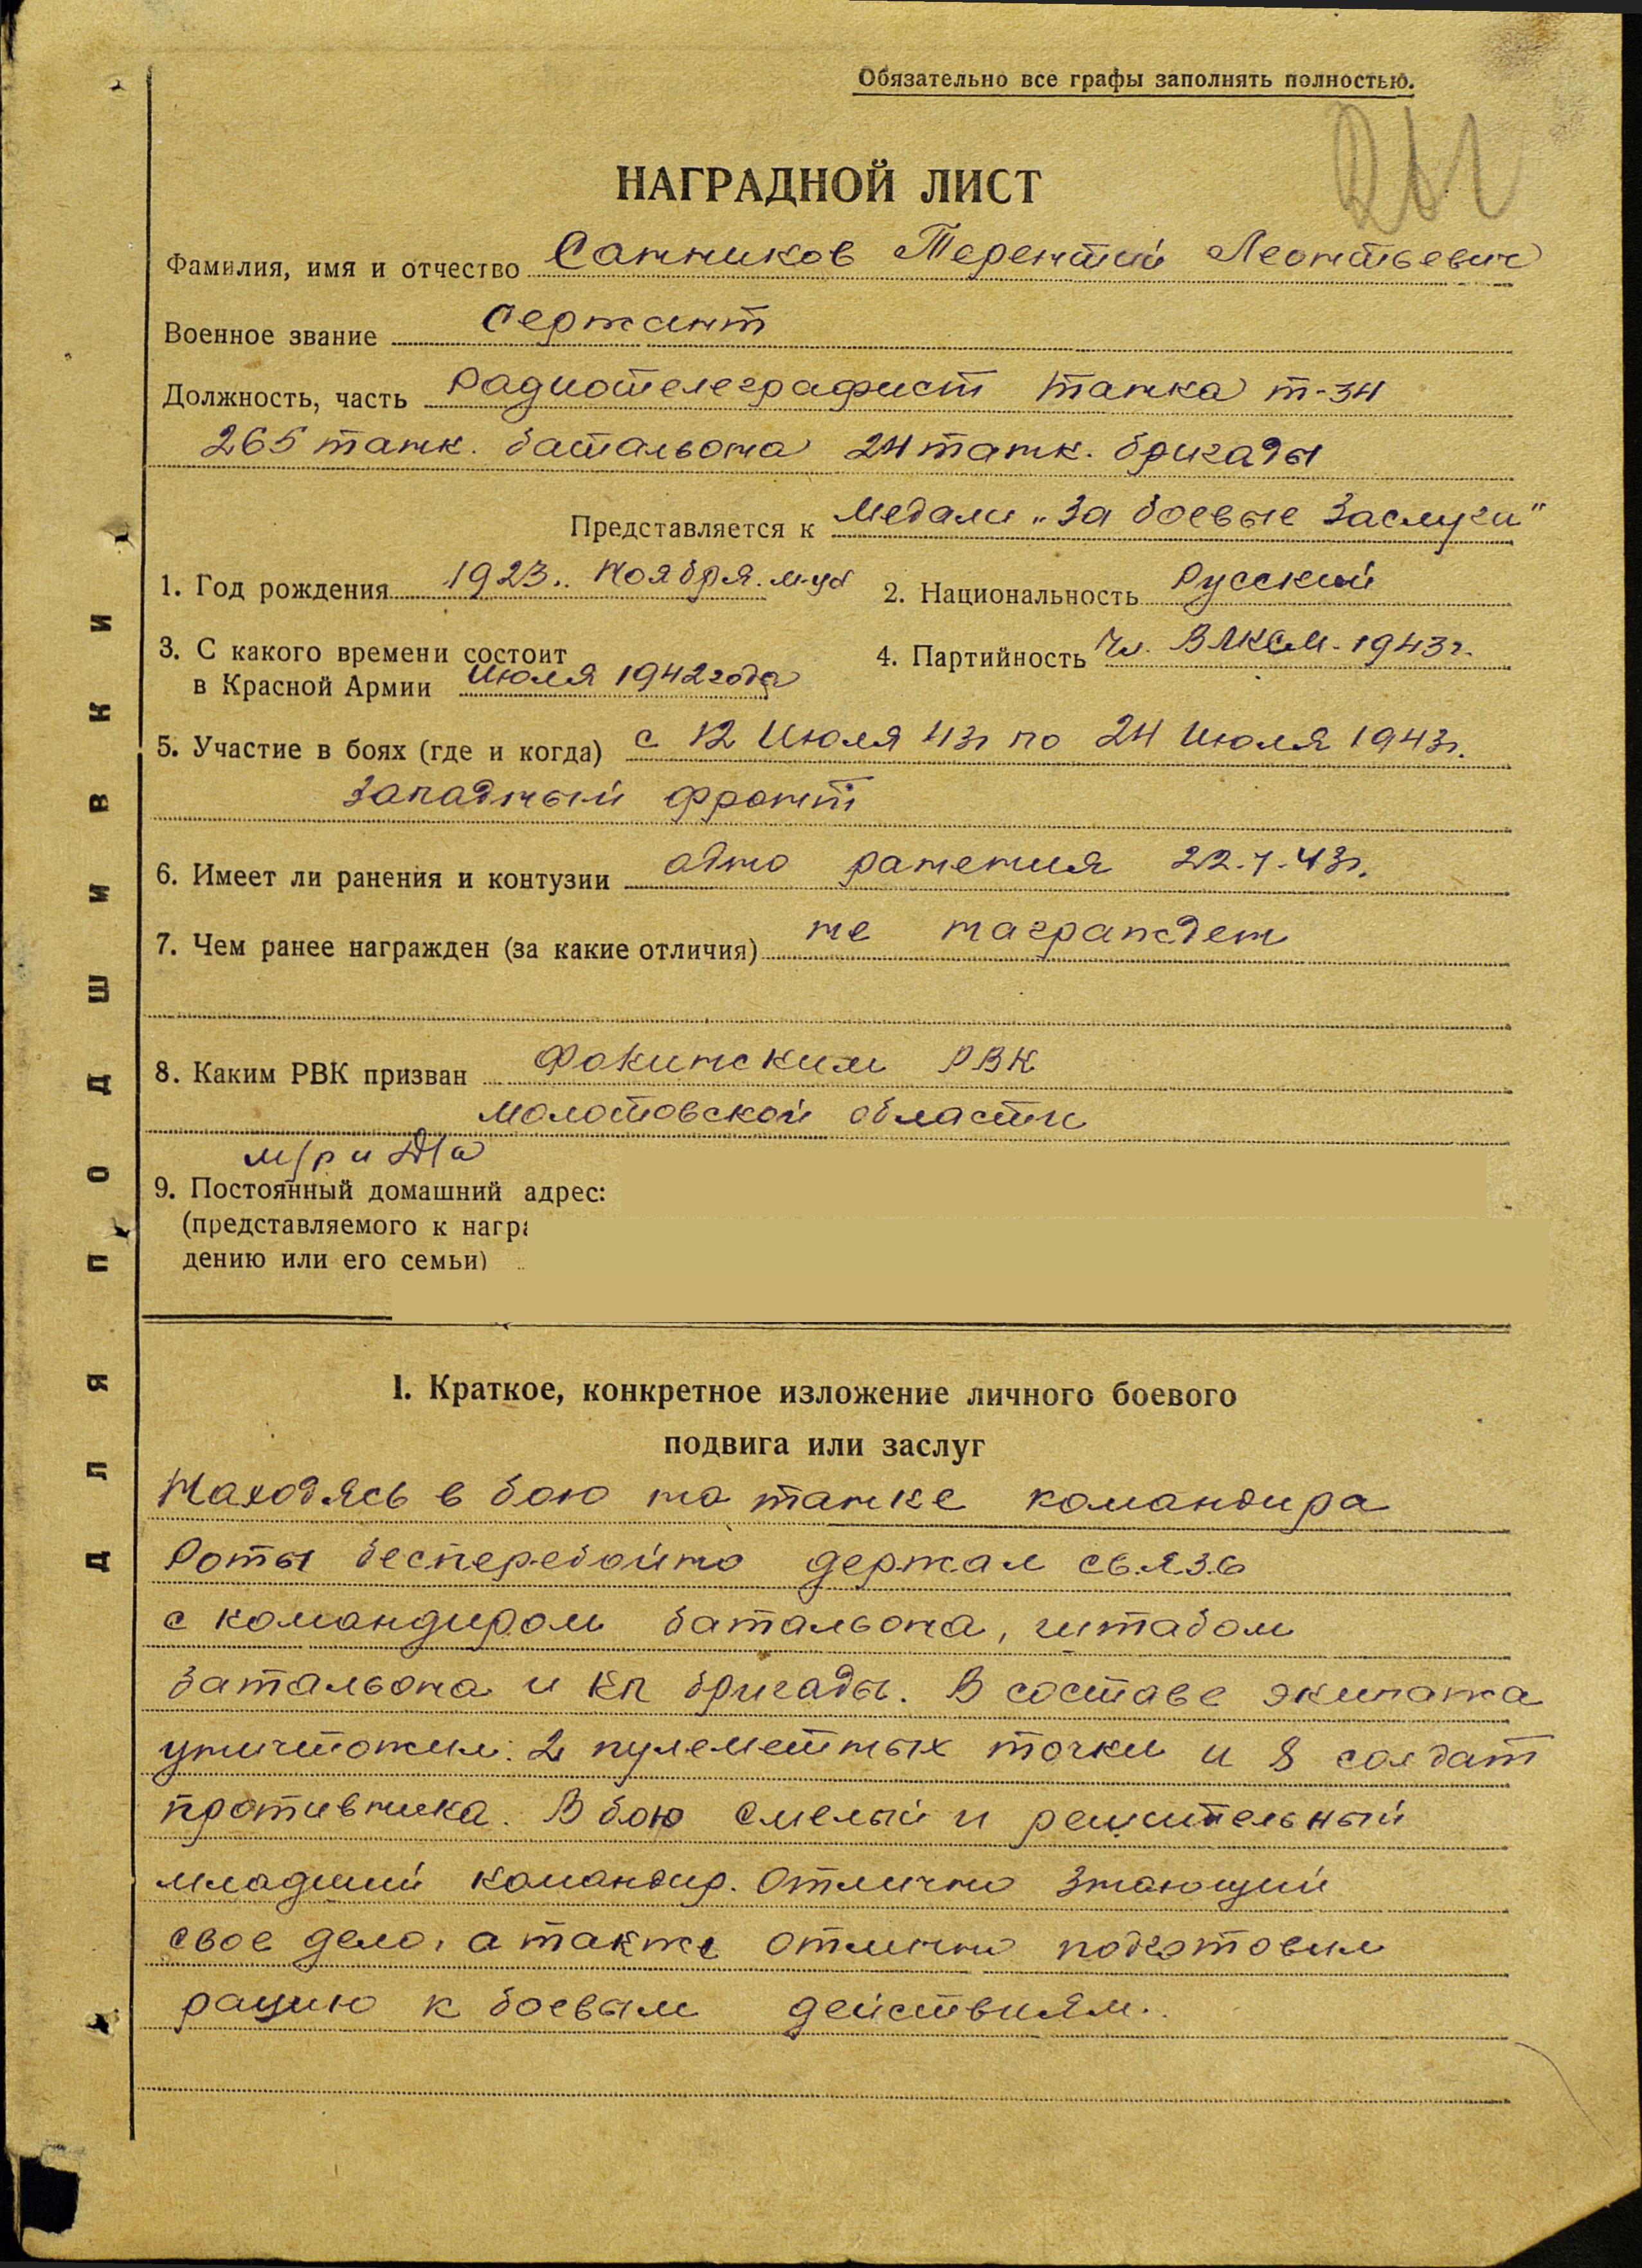 Обязательно все графы заполнять полностью.
НАГРАДНОЙ ЛИСТ
Фамилия, имя и отчество Санников Терентий Леонтьевич
Военное звание Сержант
Должность, часть Радиотелеграфист танка т-34
265 танк. батальона 24 танк. бригады
Представляется к медали „За боевые Заслуги"
1. Год рождения 1923. Ноября. м-ца 2. Национальность Русский
3. С какого времени состоит
в Красной Армии Июля 1942 года 4. Партийность Чл. ВЛКСМ - 1943г.
5. Участие в боях (где и когда) с 12 Июля 43г по 24 Июля 1943г.
Западный фронт
6. Имеет ли ранения и контузии одно ранения 22.7.43г.
7. Чем ранее награжден (за какие отличия) не награжден
8. Каким РВК призван Фокинским РВК
Молотовской области
м/р и Д/а
9. Постоянный домашний адрес:
(представляемого к награ
дению или его семьи)
I. Краткое, конкретное изложение личного боевого
подвига или заслуг
Находясь в бою на танке командира
Роты бесперебойно держал связь
с командиром батальона, штабом
батальона и КП бригады. В составе экипажа
уничтожил: 2 пулеметных точки и 8 солдат
противника. В бою смелый и решительный
младший командир. Отлично Знающий
свое дело, а также отлично подготовил
рацию к боевым действиям.
ДЛЯ ПОДШИВКИ